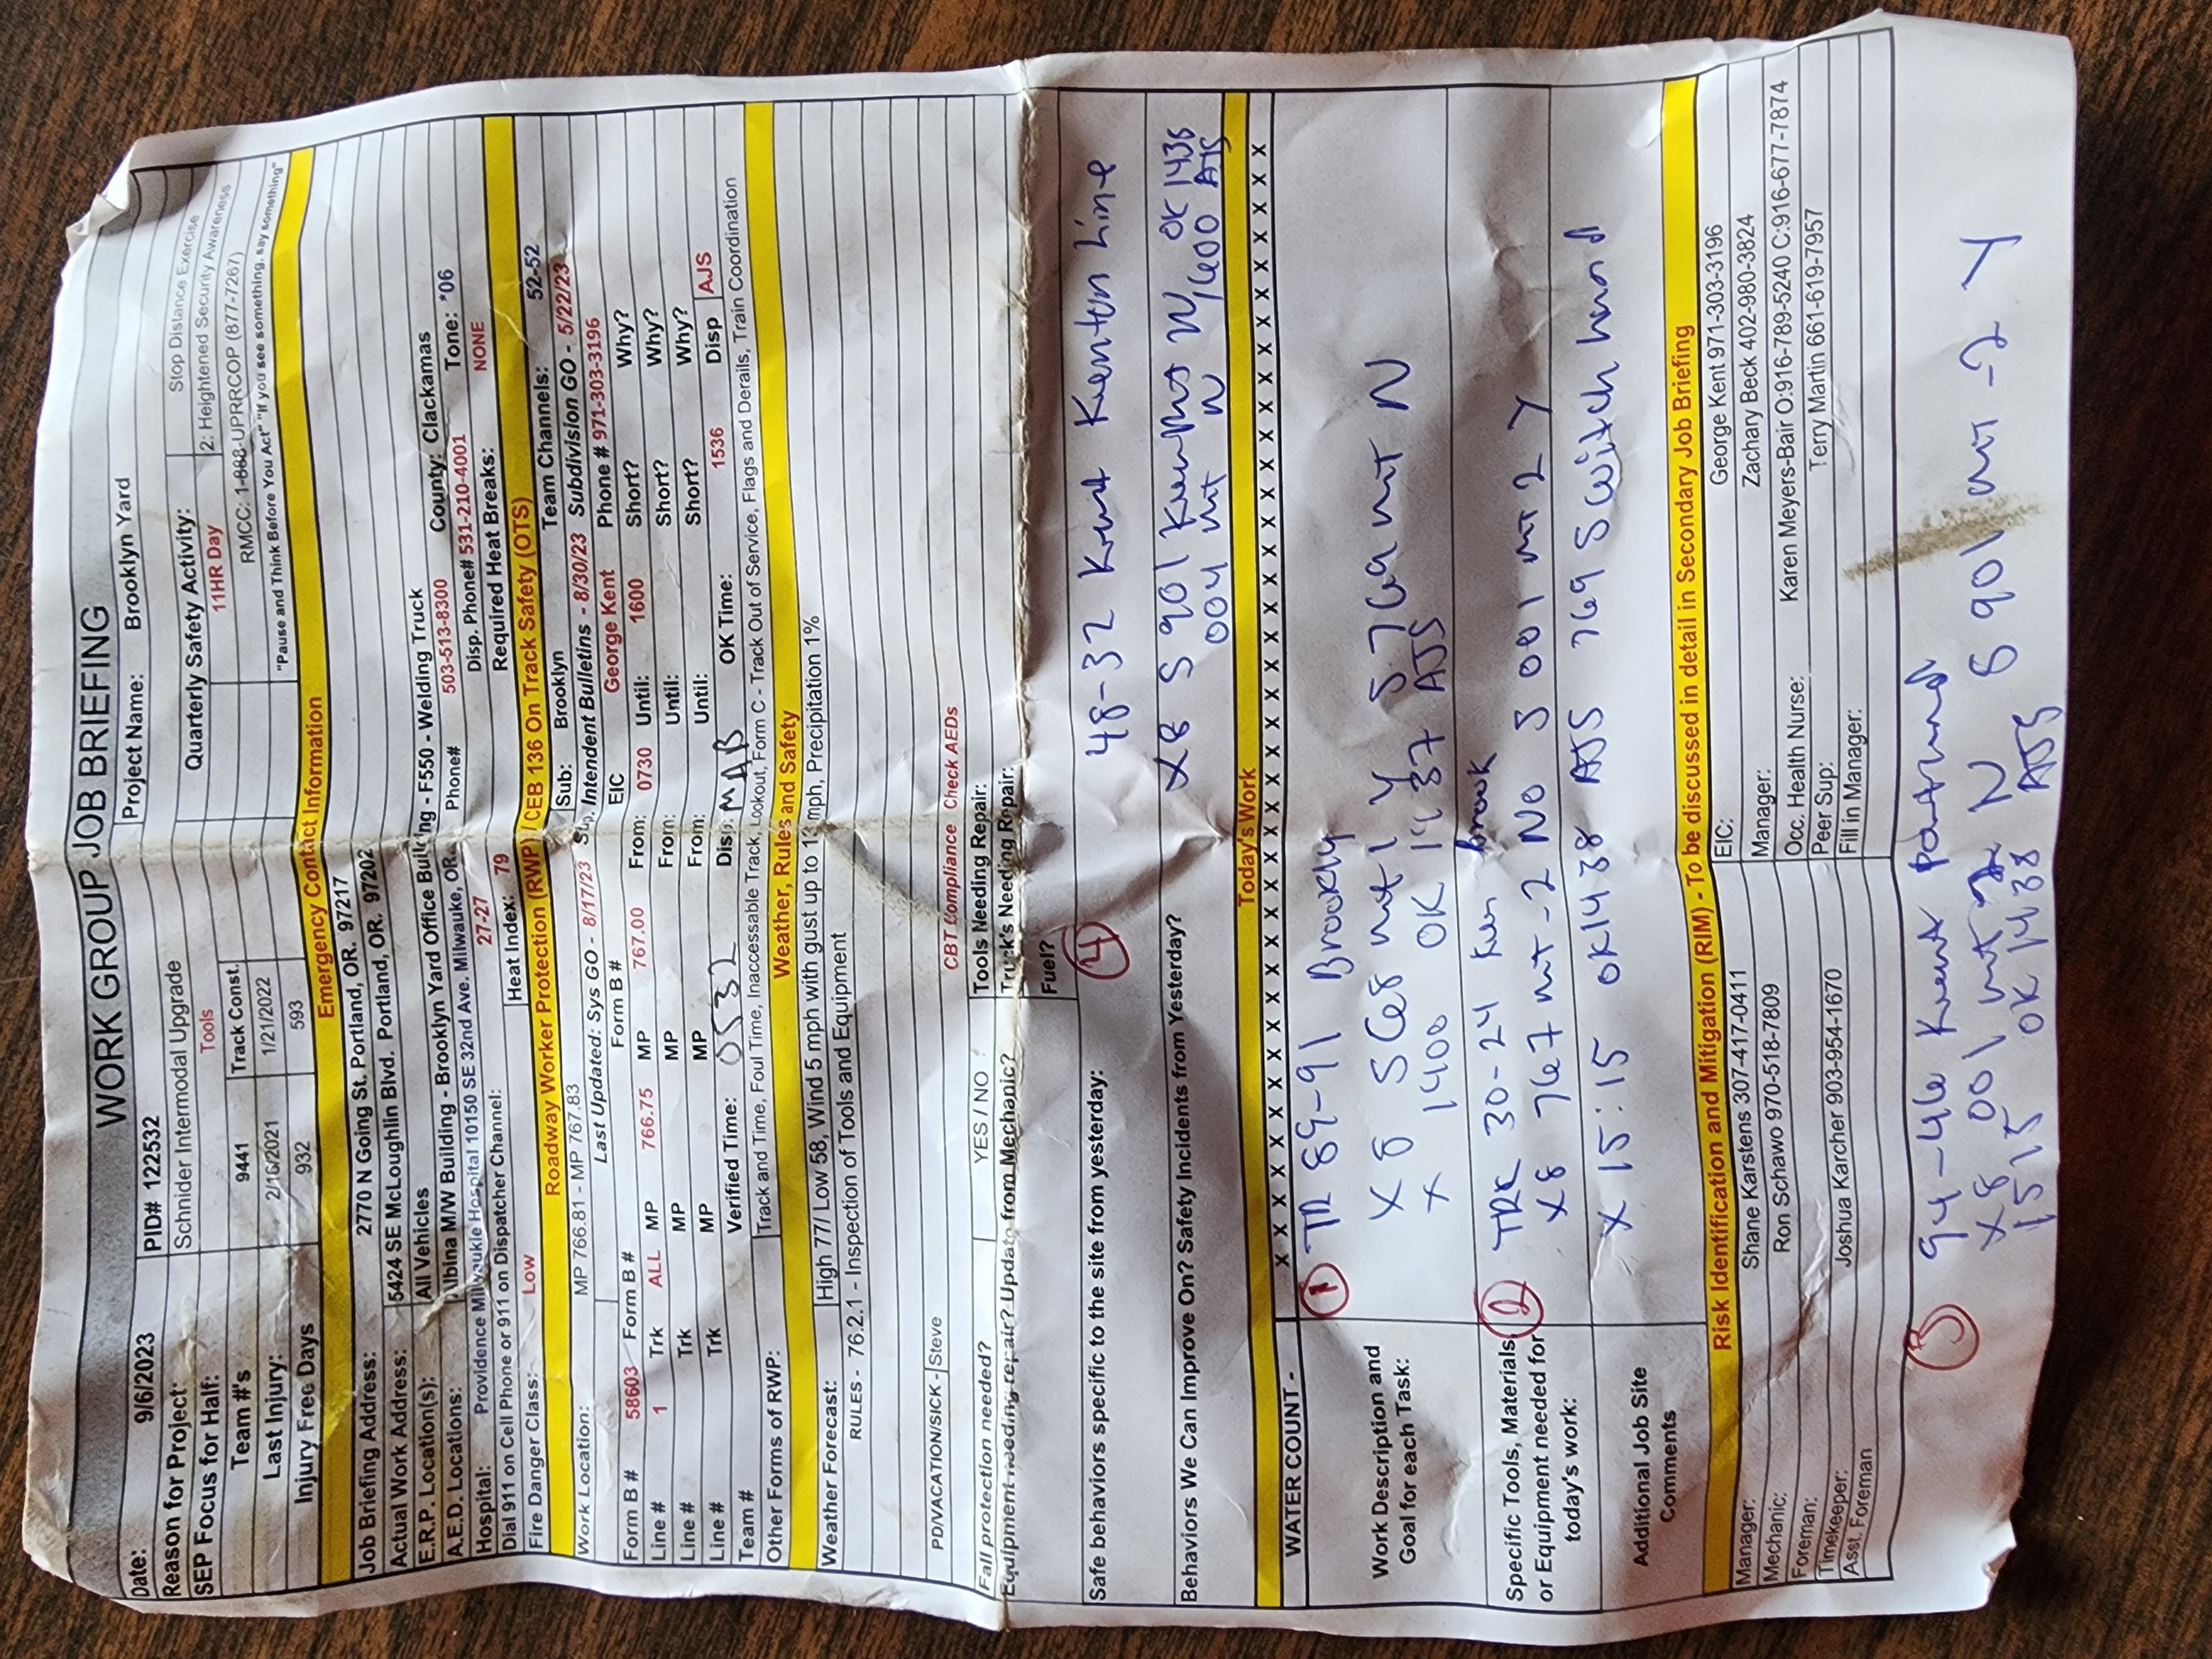 WORK GROUP JOB BRIEFING
Date: 9/6/2023 PID# 122532 Project Name: Brooklyn Yard
Reason for Project: Schnider Intermodal Upgrade Stop Distance Exercise
SEP Focus for Half: Tools Quarterly Safety Activity: 2: Heightened Security Awareness
Team #'s 9441 Track Const. 11HR Day
Last Injury: 2/16/2021 1/21/2022 RMCC: 1-888-UPRRCOP (877-7267)
Injury Free Days 932 593 "Pause and Think Before You Act" "If you see something, say something"
Emergency Contact Information
Job Briefing Address: 2770 N Going St. Portland, OR. 97217
Actual Work Address: 5424 SE McLoughlin Blvd. Portland, OR. 97202
E.R.P. Location(s): All Vehicles
A.E.D. Locations: Albina M/W Building - Brooklyn Yard Office Building - F550 - Welding Truck County: Clackamas
Hospital: Providence Milwaukie Hospital 10150 SE 32nd Ave. Milwaukie, OR. Phone# 503-513-8300 Tone: *06
Dial 911 on Cell Phone or 911 on Dispatcher Channel: 27-27 Disp. Phone# 531-210-4001
Fire Danger Class: Low Heat Index: 79 Required Heat Breaks: NONE
Roadway Worker Protection (RWP) / CEB 136 On Track Safety (OTS)
Work Location: MP 766.81 - MP 767.83 Sub: Brooklyn Team Channels: 52-52
Last Updated: Sys GO - 8/17/23 Sup. Intendent Bulletins - 8/30/23 Subdivision GO - 5/22/23
Form B # 58603 Form B # Form B # EIC George Kent Phone # 971-303-3196
Line # 1 Trk ALL MP 766.75 MP 767.00 From: 0730 Until: 1600 Short? Why?
Line # Trk MP MP From: Until: Short? Why?
Line # Trk MP MP From: Until: Short? Why?
Team # Verified Time: 0532 Disp. MAB OK Time: 1536 Disp AJS
Other Forms of RWP: Track and Time, Foul Time, Inaccessable Track, Lookout, Form C - Track Out of Service, Flags and Derails, Train Coordination
Weather, Rules and Safety
Weather Forecast: High 77/ Low 58, Wind 5 mph with gust up to 13 mph, Precipitation 1%
RULES - 76.2.1 - Inspection of Tools and Equipment
PD/VACATION/SICK - Steve CBT Compliance Check AEDs
Fall protection needed? YES / NO Tools Needing Repair:
Equipment needing repair? Update from Mechanic? Truck's Needing Repair:
Fuel?
Safe behaviors specific to the site from yesterday: 4 48-32 Kent Kenton Line
Behaviors We Can Improve On? Safety Incidents from Yesterday? X8 S 901 MT N OK 1438
004 MT N 1600 AJS
Today's Work
WATER COUNT - X X X X X X X X X X X X X X X X X X X X X X X X X X X X X X
1 TR 89-91 Brooklyn
Work Description and Goal for each Task: X 8 MT 1 Y S 769 MT N
X 1400 OK 1437 AJS
Specific Tools, Materials or Equipment needed for today's work: 2 TRK 30-24 Brook
X8 767 MT-2 NO S 001 MT 2 Y
Additional Job Site Comments X 15:15 OK1438 AJS 769 Switch hand
Risk Identification and Mitigation (RIM) - To be discussed in detail in Secondary Job Briefing
Manager: Shane Karstens 307-417-0411 EIC: George Kent 971-303-3196
Mechanic: Ron Schawo 970-518-7809 Manager: Zachary Beck 402-980-3824
Foreman: Occ. Health Nurse: Karen Meyers-Bair O:916-789-5240 C:916-677-7874
Timekeeper: Joshua Karcher 903-954-1670 Peer Sup: Terry Martin 661-619-7957
Asst. Foreman Fill in Manager:
3 94-46 Kent
X8 001 MT 2 N S 901 MT -2 Y
1515 OK 1438 AJS